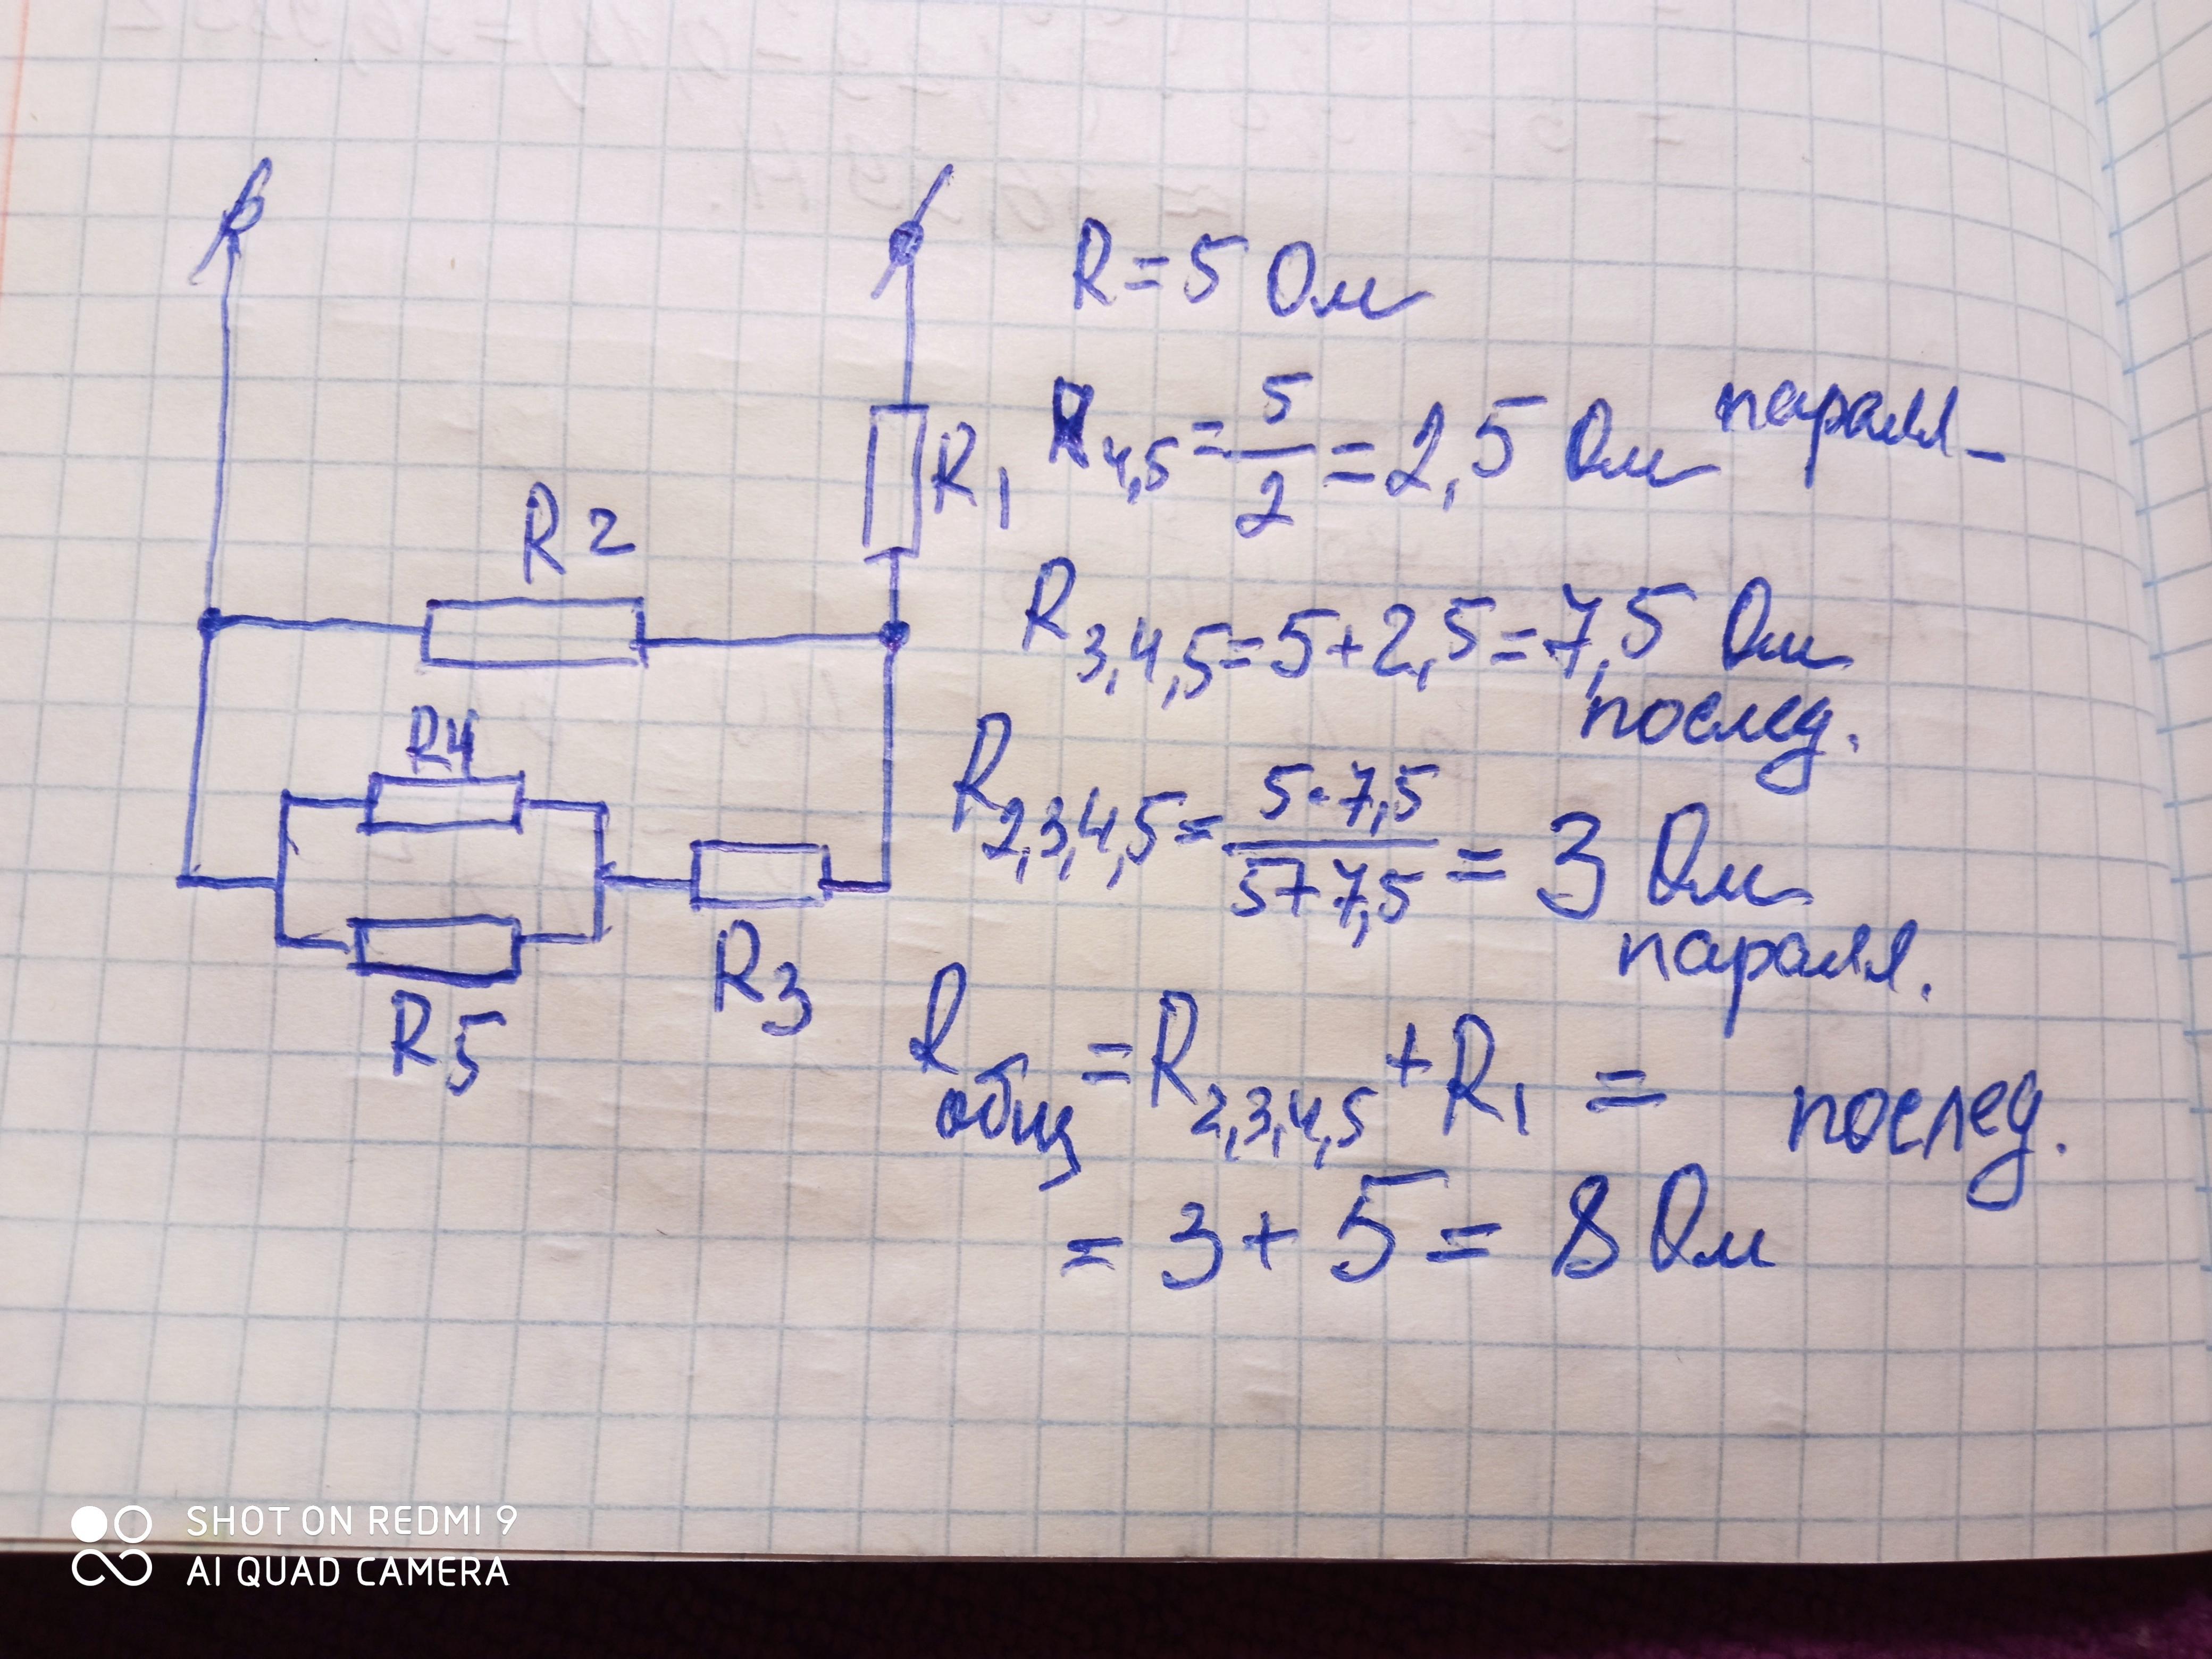 R2
R1
R4
R5
R3
R = 5 Ом
R4,5 = 5/2 = 2,5 Ом паралл-
R3,4,5 = 5+2,5 = 7,5 Ом
послед.
R2,3,4,5 = 5·7,5/5+7,5 = 3 Ом
паралл.
Rобщ = R2,3,4,5 + R1 = послед.
= 3 + 5 = 8 Ом
SHOT ON REDMI 9
AI QUAD CAMERA